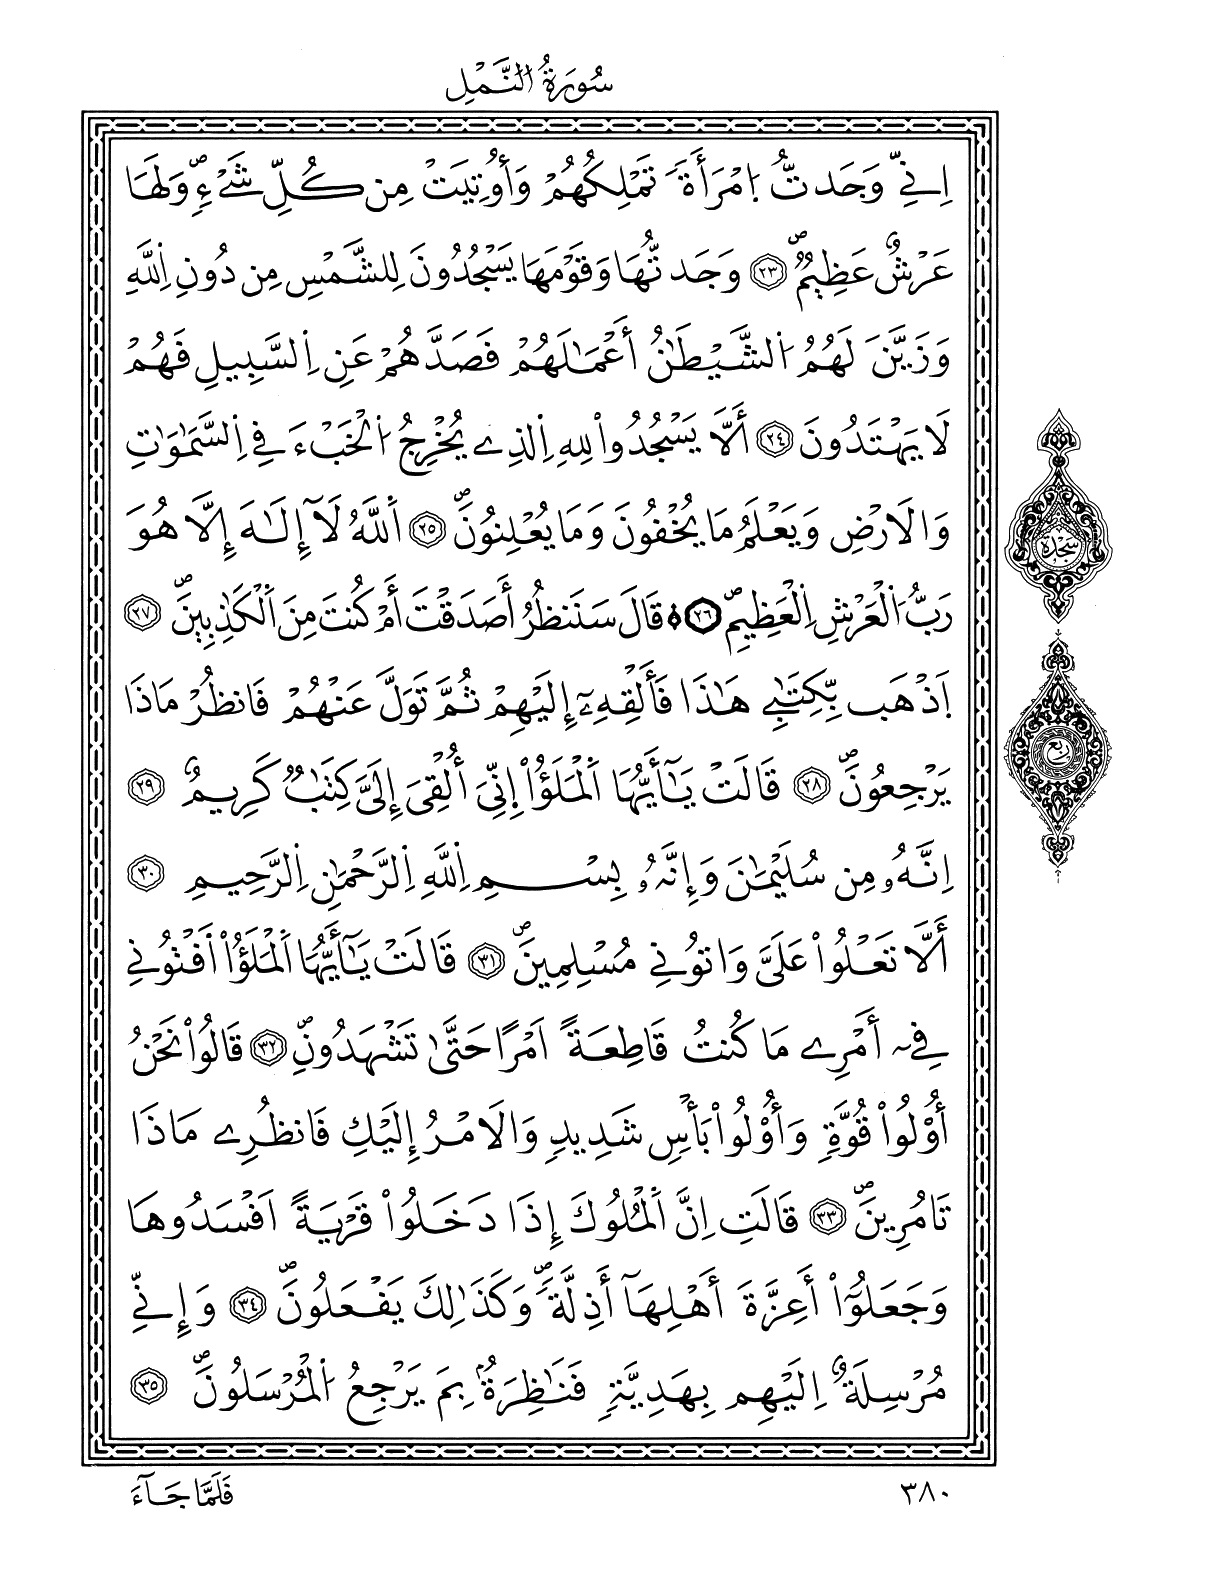 سُورَةُ النَّمْلِ
اِنِّے وَجَدتُّ اُ۪مْرَأَةٗ تَمْلِكُهُمْ وَأُوتِيَتْ مِن كُلِّ شَےْءٖۖ وَلَهَا
عَرْشٌ عَظِيمٞۖ ۝٢٣ وَجَدتُّهَا وَقَوْمَهَا يَسْجُدُونَ لِلشَّمْسِ مِن دُونِ اِ۬للَّهِ
وَزَيَّنَ لَهُمُ اُ۬لشَّيْطَٰنُ أَعْمَٰلَهُمْ فَصَدَّهُمْ عَنِ اِ۬لسَّبِيلِ فَهُمْ
لَا يَهْتَدُونَ ۝٢٤ أَلَّا يَسْجُدُواْ لِلهِ اِ۬لذِے يُخْرِجُ اُ۬لْخَبْءَ فِے اِ۬لسَّمَٰوَٰتِ
وَالَارْضِ وَيَعْلَمُ مَا يُخْفُونَ وَمَا يُعْلِنُونَۖ ۝٢٥ اَ۬للَّهُ لَآ إِلَٰهَ إِلَّا هُوَ
رَبُّ اُ۬لْعَرْشِ اِ۬لْعَظِيمِۖ ۝٢٦ ۞ قَالَ سَنَنظُرُ أَصَدَقْتَ أَمْ كُنتَ مِنَ اَ۬لْكَٰذِبِينَۖ ۝٢٧
اَ۪ذْهَب بِّكِتَٰبِے هَٰذَا فَأَلْقِهِۦٓ إِلَيْهِمْ ثُمَّ تَوَلَّ عَنْهُمْ فَانظُرْ مَاذَا
يَرْجِعُونَۖ ۝٢٨ قَالَتْ يَٰٓأَيُّهَا اَ۬لْمَلَؤُاْ اِنِّيَ أُلْقِيَ إِلَيَّ كِتَٰبٞ كَرِيمٌ ۝٢٩
اِنَّهُۥ مِن سُلَيْمَٰنَ وَإِنَّهُۥ بِسْمِ اِ۬للَّهِ اِ۬لرَّحْمَٰنِ اِ۬لرَّحِيمِ ۝٣٠
أَلَّا تَعْلُواْ عَلَيَّ وَاتُونِے مُسْلِمِينَۖ ۝٣١ قَالَتْ يَٰٓأَيُّهَا اَ۬لْمَلَؤُاْ اَفْتُونِے
فِےٓ أَمْرِے مَا كُنتُ قَاطِعَةً اَمْراً حَتَّىٰ تَشْهَدُونِۖ ۝٣٢ قَالُواْ نَحْنُ
أُوْلُواْ قُوَّةٖ وَأُوْلُواْ بَأْسٖ شَدِيدٖ وَالَامْرُ إِلَيْكِ فَانظُرِے مَاذَا
تَامُرِينَۖ ۝٣٣ قَالَتِ اِنَّ اَ۬لْمُلُوكَ إِذَا دَخَلُواْ قَرْيَةً اَفْسَدُوهَا
وَجَعَلُوٓاْ أَعِزَّةَ أَهْلِهَآ أَذِلَّةٗۖ وَكَذَٰلِكَ يَفْعَلُونَۖ ۝٣٤ وَإِنِّے
مُرْسِلَةٌ اِلَيْهِم بِهَدِيَّةٖ فَنَٰظِرَةُۢ بِمَ يَرْجِعُ اُ۬لْمُرْسَلُونَۖ ۝٣٥
سجدة
ربع
٣٨٠
فَلَمَّا جَآءَ